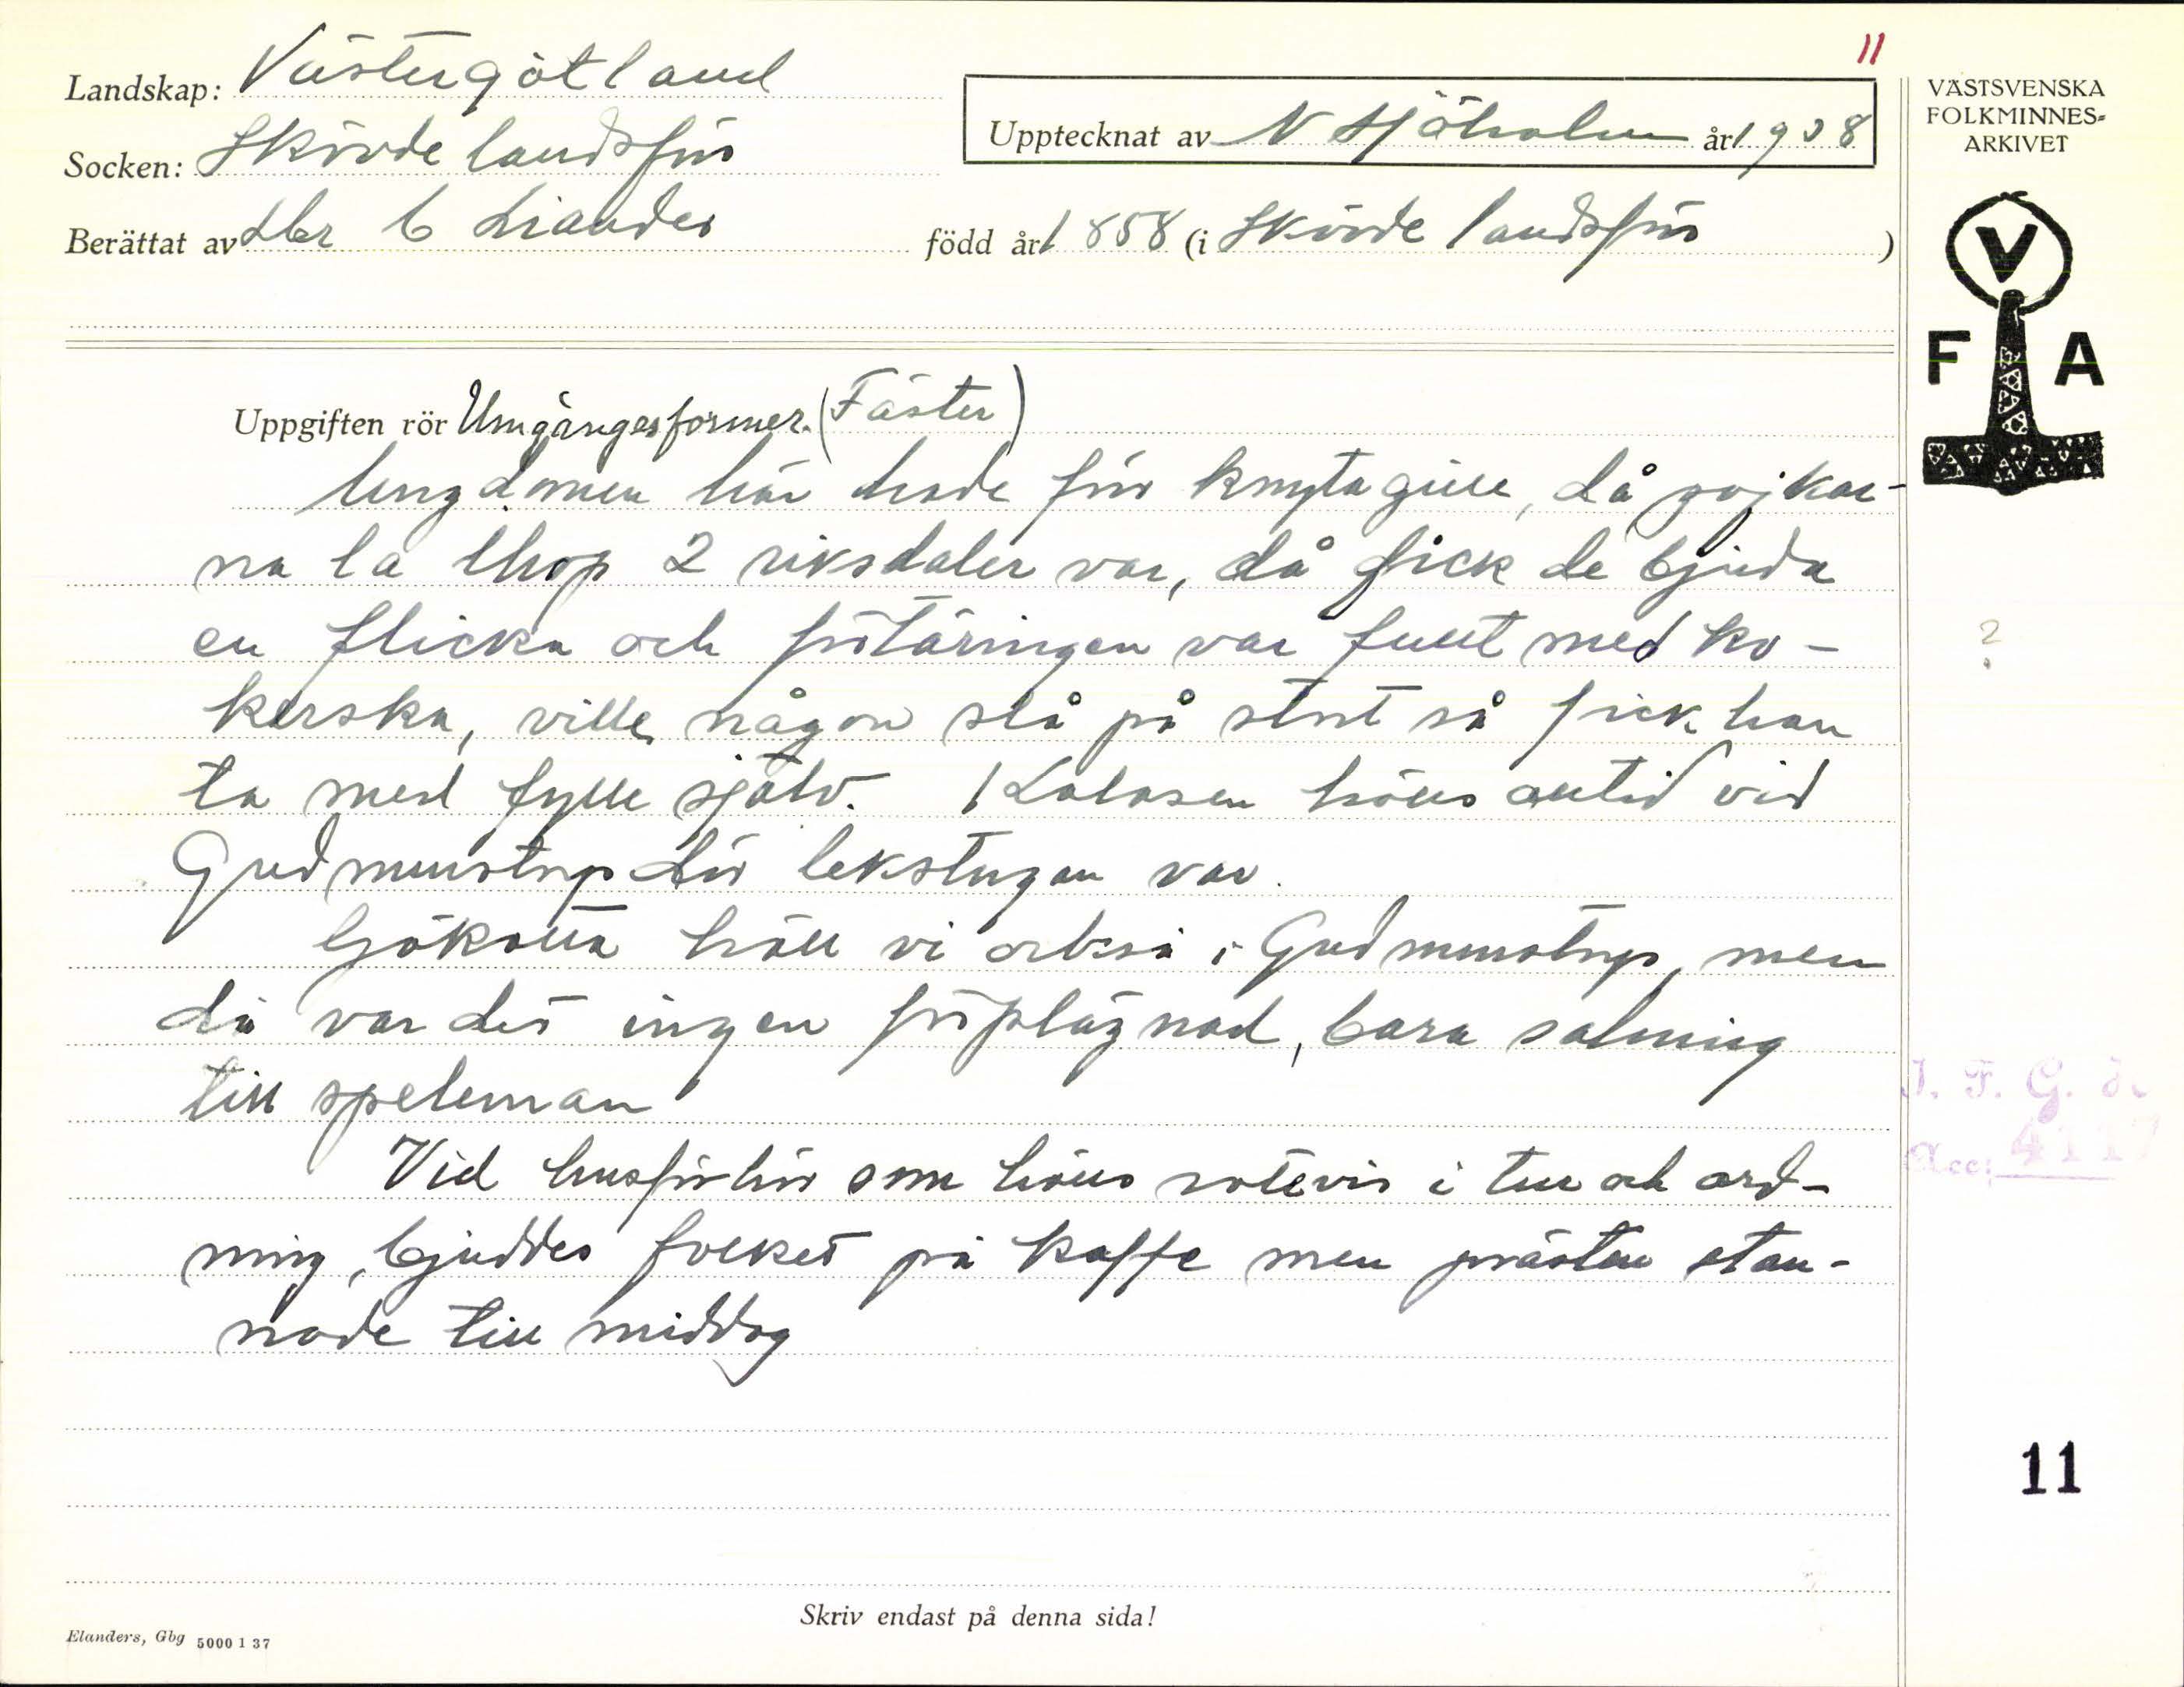 11
Landskap: Västergötland
Socken: Skövde landsförs
Upptecknat av N Sjöholm år 1938
Berättat av Lbr C Liander född år 1858 (i Skövde landsförs)
VÄSTSVENSKA
FOLKMINNES-
ARKIVET
V
F A
Uppgiften rör Umgängesformer. (Fäster)
Ungdomen här hade för knytagille, då pojkar-
na la ihop 2 riksdaler var, då fick de bjuda
en flicka och förtäringen var fullt med ko-
kerska, ville någon slå på stort så fick han
ta med fylle själv. Kalasen hölls alltid vid
Gudmunstrup där lekstugan var.
Gökotta höll vi också i Gudmunstrup, men
då var det ingen förplägnad, bara salning
till speleman
Vid husförhör som hölls rotevis i tur och ord-
ning, bjuddes folket på kaffe men prästen stan-
nade till middag
?
I. F. G. s.
Acc: 4117
11
Skriv endast på denna sida!
Elanders, Gbg 5000 1 37